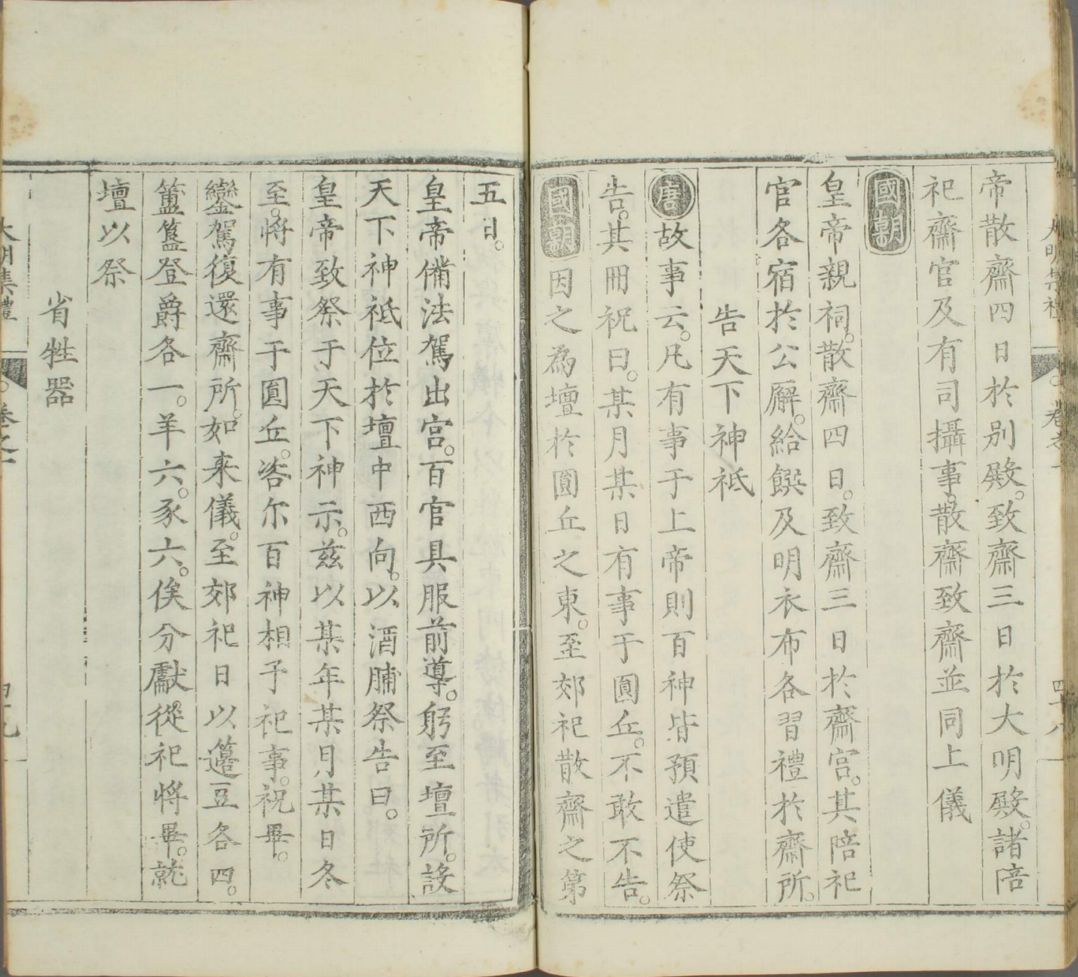 大明集禮 卷之一 四十八
帝散齋四日於別殿。致齋三日於大明殿。諸陪
祀齋官及有司攝事。散齋致齋並同上儀
國朝
皇帝親祠。散齋四日。致齋三日於齋宮。其陪祀
官各宿於公廨。給饌及明衣布各習禮於齋所。
告天下神祇
唐故事云。凡有事于上帝則百神皆預遣使祭
告。其冊祝曰。某月某日有事于圓丘。不敢不告。
國朝因之為壇於圓丘之東。至郊祀散齋之第
五日。
皇帝備法駕出宮。百官具服前導。躬至壇所。設
天下神祇位於壇中西向。以酒脯祭告曰。
皇帝致祭于天下神示。茲以某年某月某日冬
至。將有事于圓丘。咨尔百神相予祀事。祝畢。
鑾駕復還齋所。如来儀。至郊祀日以籩豆各四。
簠簋登爵各一。羊六。豕六。俟分獻從祀將畢。就
壇以祭
省牲器
大明集禮 卷之一 四十九